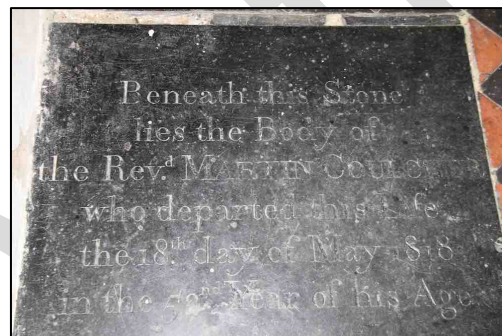 Beneath this Stone
lies the Body of
the Rev.d MARTIN COULCHER
who departed this Life
the 18.th day of May 1818
in the 52.nd Year of his Age